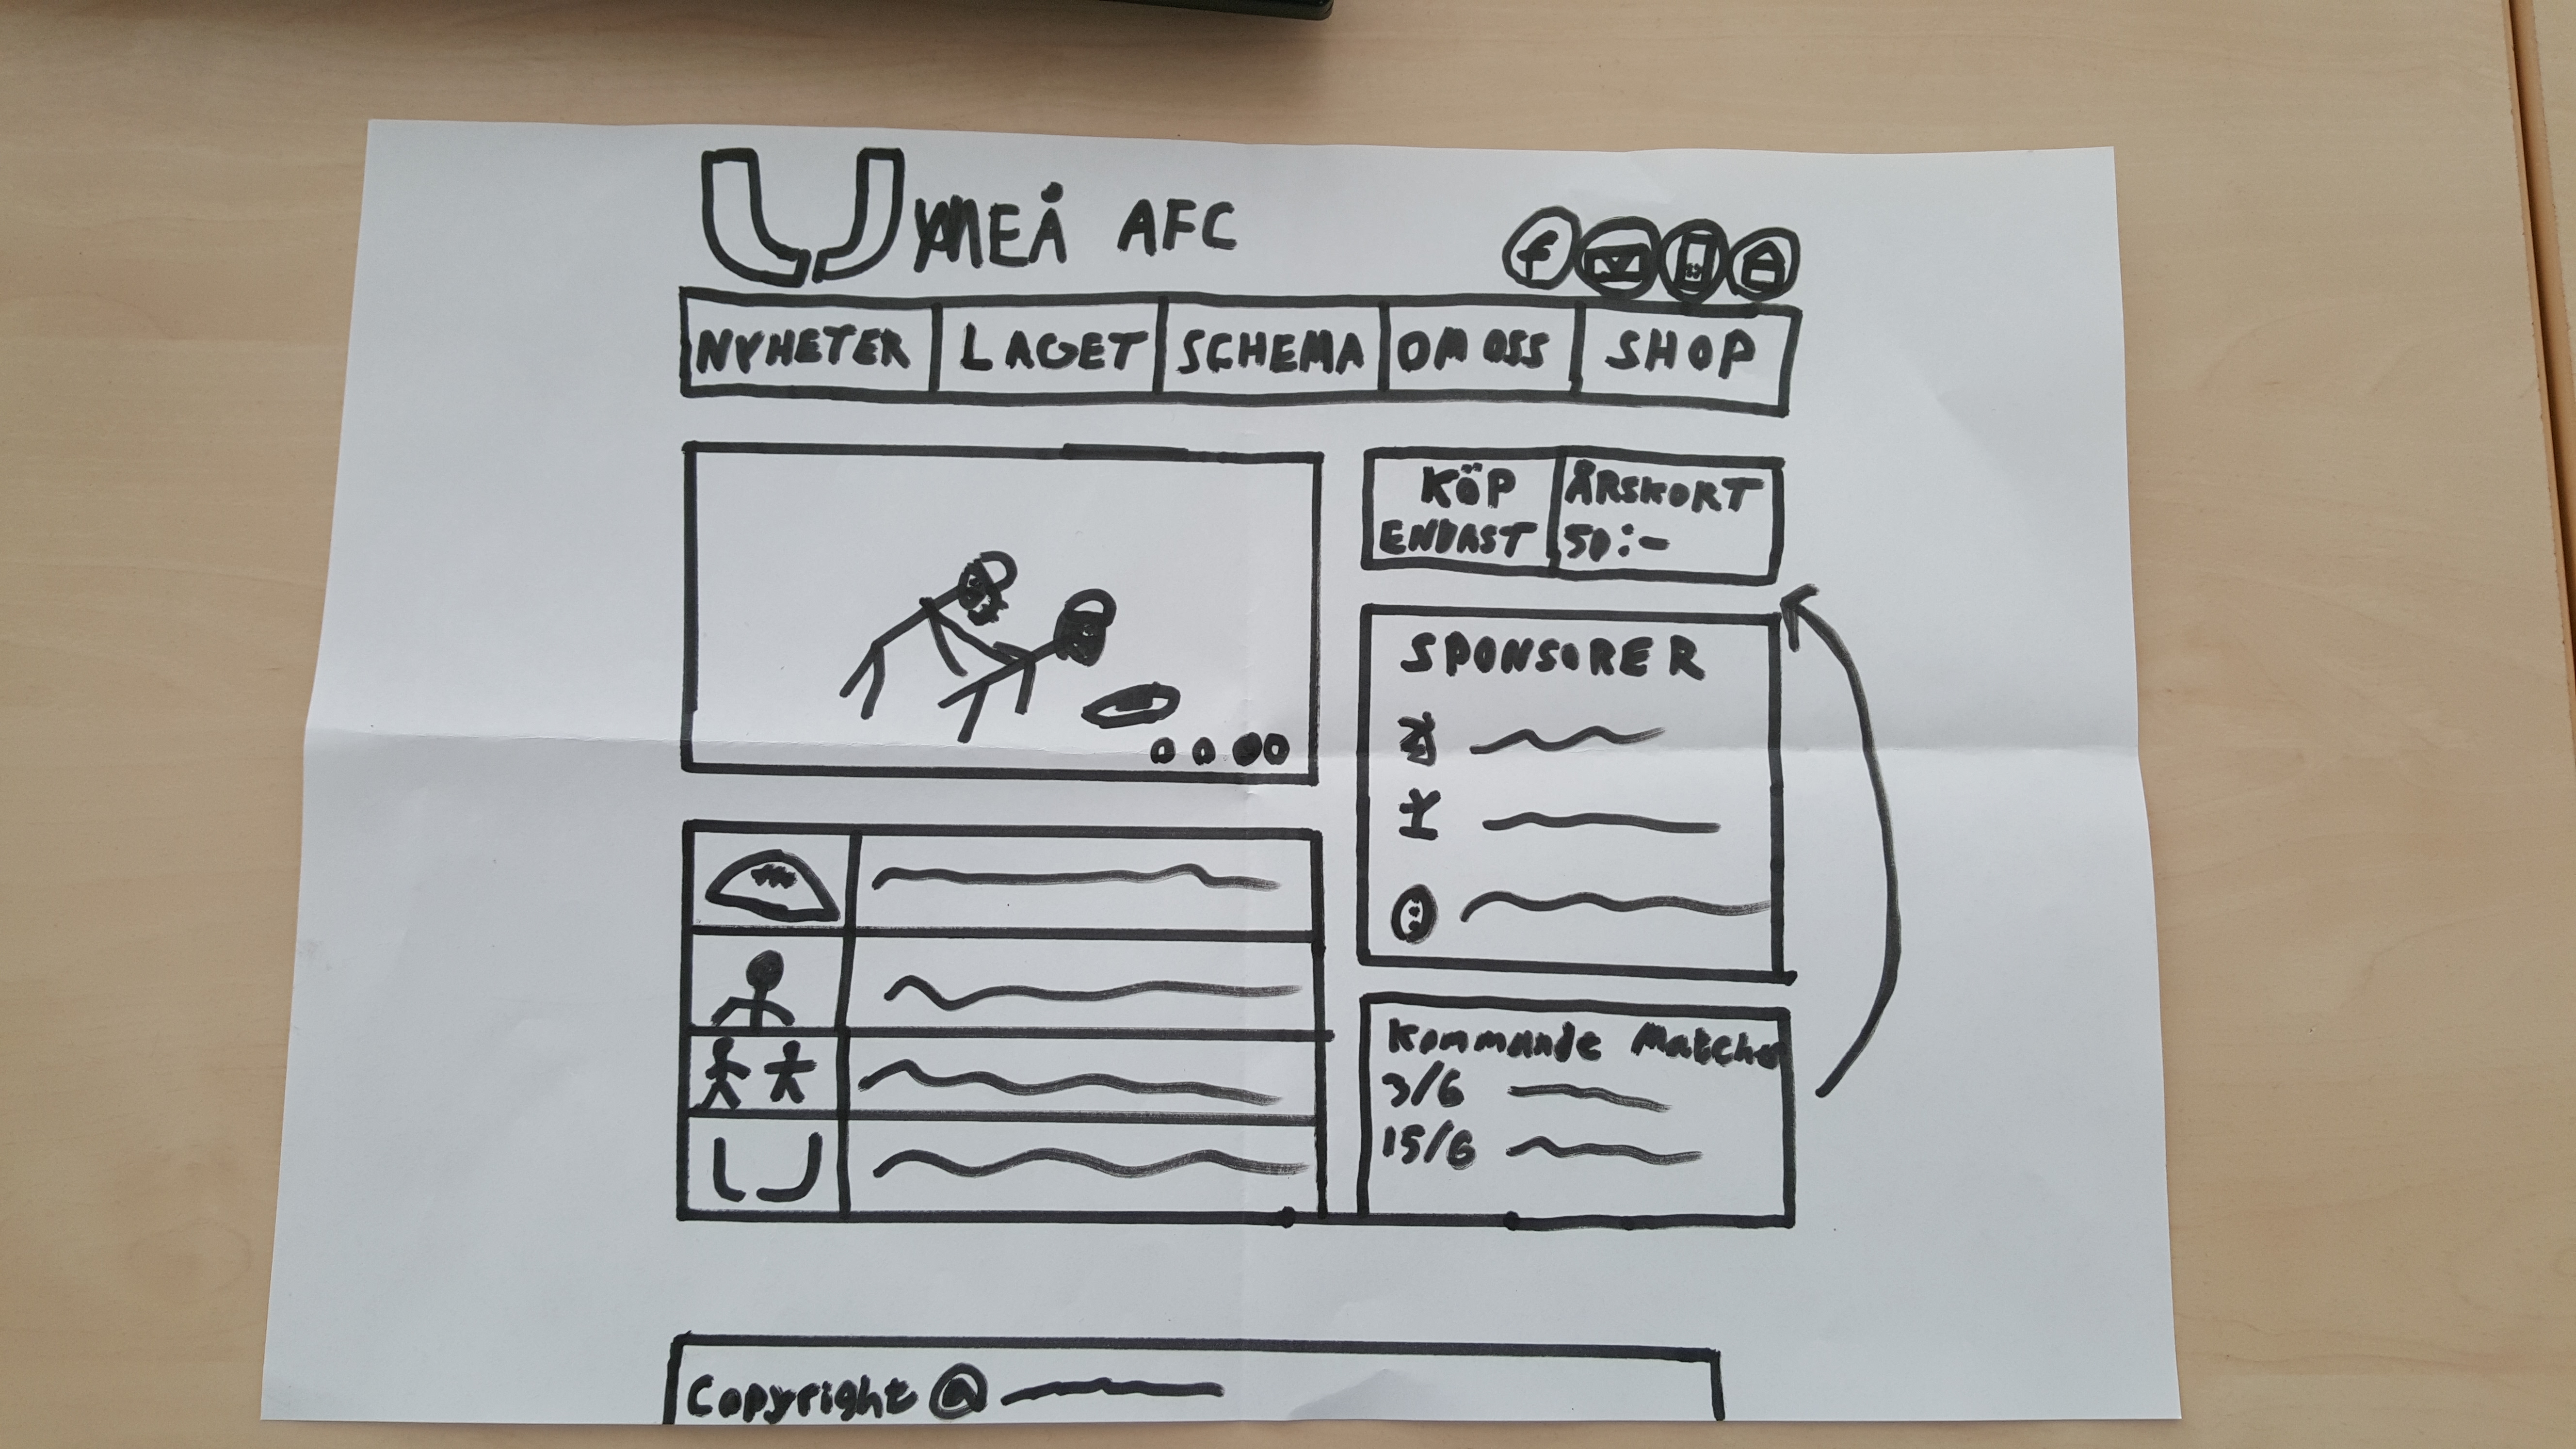 UMEÅ AFC
f
NYHETER LAGET SCHEMA OM OSS SHOP
KÖP ÅRSKORT
ENDAST 50:-
SPONSORER
Kommande Matcher
3/6
15/6
Copyright @